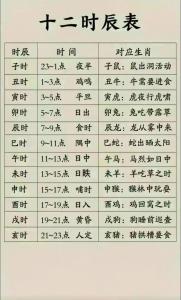 十二时辰表
时辰 时间 对应生肖
子时 23~1点 夜半 子鼠：鼠出洞活动
丑时 1~3点 鸡鸣 丑牛：牛需要进食
寅时 3~5点 平旦 寅虎：虎夜行流啸
卯时 5~7点 日出 卯兔：兔吃带露草
辰时 7~9点 食时 辰龙：龙从雾中来
巳时 9~11点 隅中 巳蛇：蛇出晒太阳
午时 11~13点 日中 午马：马烈如日中
未时 13~15点 日昳 未羊：羊吃草之时
申时 15~17点 哺时 申猴：猴林中玩耍
酉时 17~19点 日入 酉鸡：鸡回窝之时
戌时 19~21点 黄昏 戌狗：狗睡前巡查
亥时 21~23点 人定 亥猪：猪拱槽要食